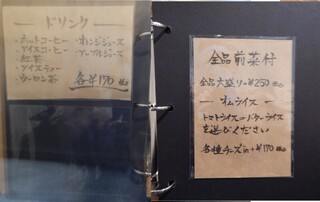 ドリンク
・ホットコーヒー ・オレンジジュース
・アイスコーヒー ・アップルジュース
・紅茶
・アイスティー
・ウーロン茶
各¥170 税込
全品前菜付
全品大盛り→¥250 税込
オムライス
トマトライス or バターライス
を選びください
各種チーズin→+¥170 税込